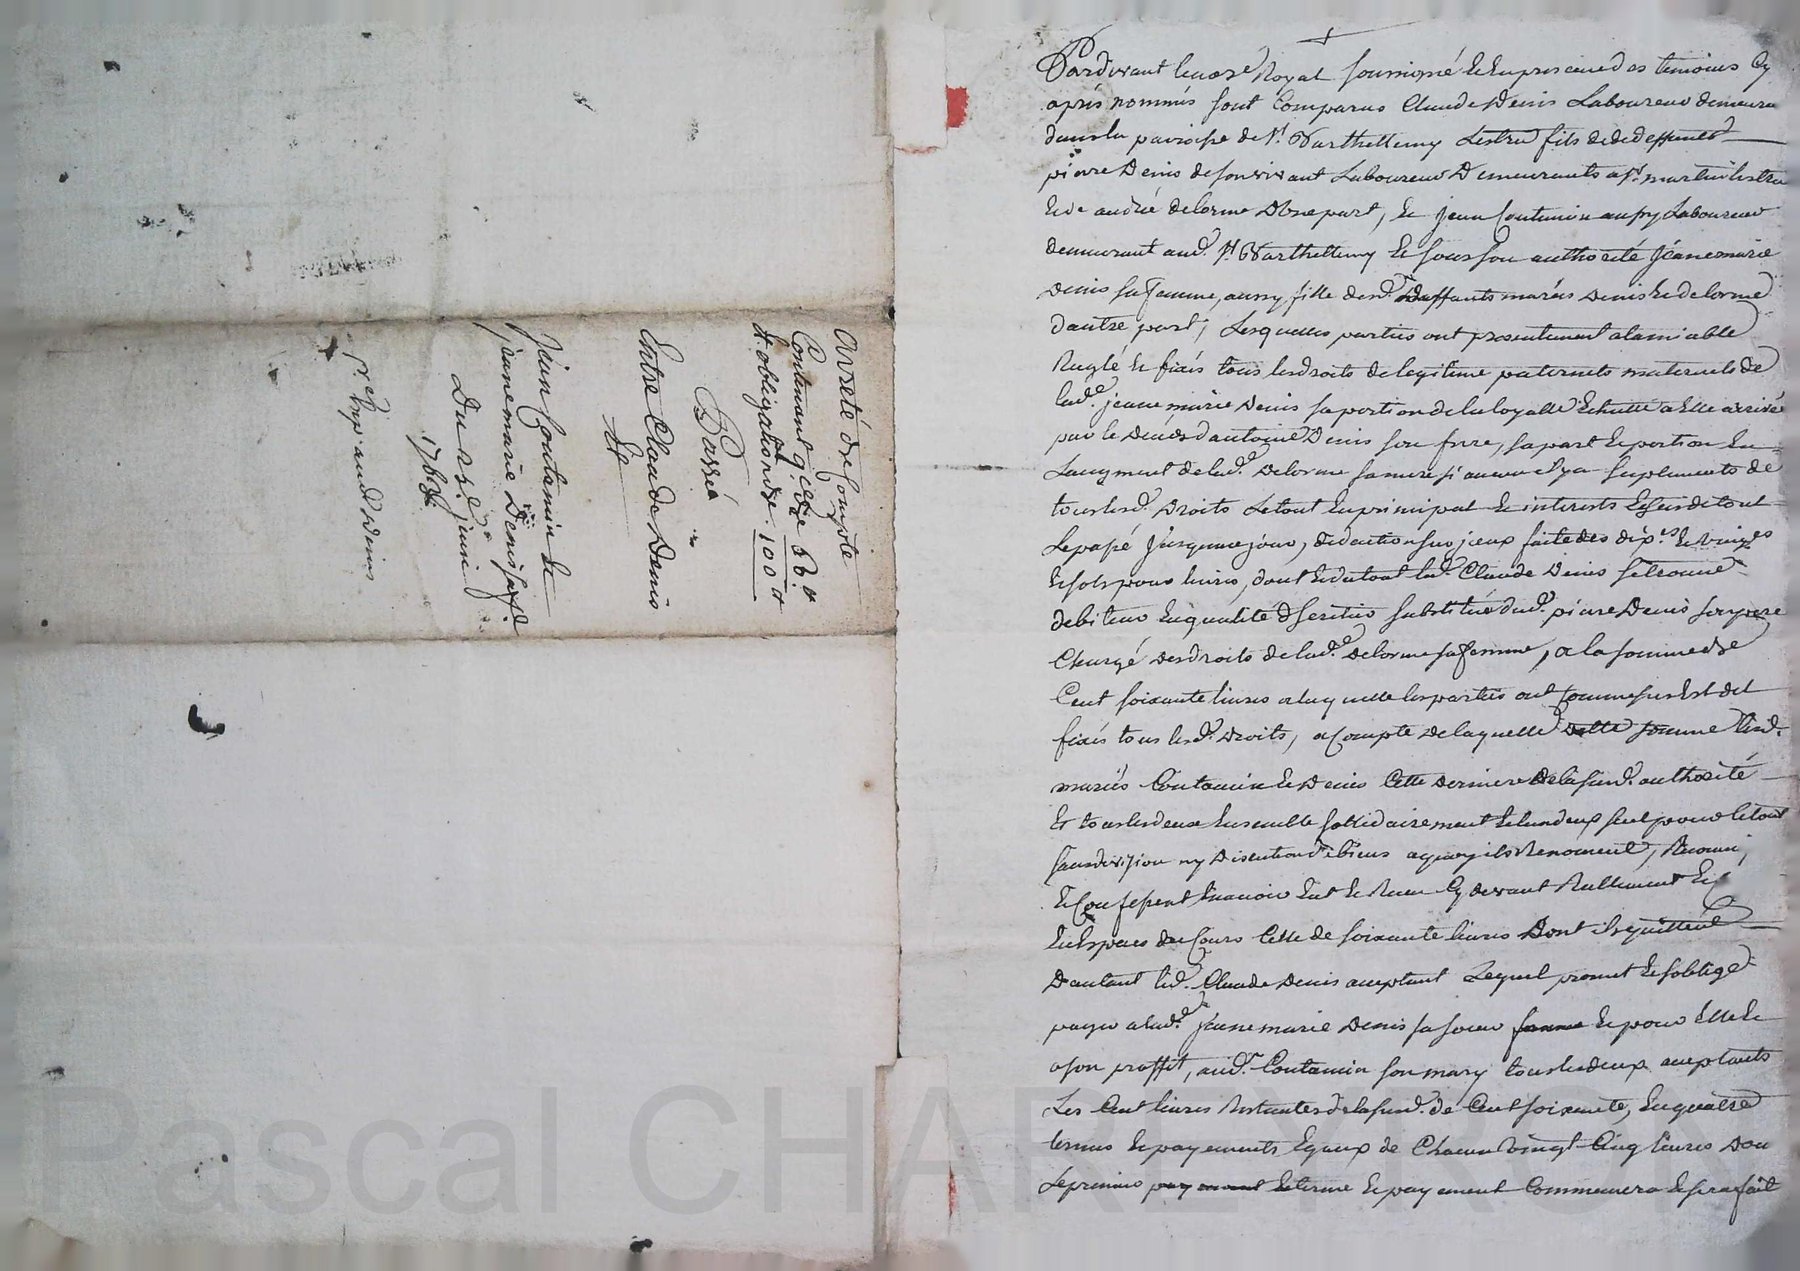 Arreté de Compte
Contenant qce de 60 #
& obligation de 100 #
Passé
Entre Claude Denis
Et
Jean Coutamin &
jeanemarie Denis sa fe
Du 25e juin
1768
pr. led. Denis
Pardevant le nore Royal soussigné Et En presence des temoins Cy
après nommés sont Comparus Claude Denis Laboureur demeurt
dans la paroisse de St. Barthellemy Lestra fils de de deffunct
piere Denis de son vivant Laboureur Demeurants a St. martin lestra
Et de andrée delorme d'Une part, Et jean Coutamin aussy Laboureur
demeurant aud. St. Barthellemy Et sous son authorité jeanemarie
Denis sa femme, aussy fille desd. deffunts mariés Denis Et delorme
d'autre part, Lesquelles parties ont presentement alamiable
Reglé Et fixés tous les droits de legitime paternels maternels de
lade. jeane marie Denis sa portion de la loyalle Echutte a Elle arrivée
par le decés d'antoine Denis son frere, sa part Et portion En
Laugment de lade. Delorme sa mere si aucun il y a suplements de
tous lesd. Droits Le tout En principal Et interests Et ce de tout
Le passé jusqu'a ce jour, deduction sur jceux faite des dixes. Et vingtes
Et sols pour livres, dont Et du tout led. Claude Denis se trouve
debiteur En qualité d'heritier substitué dud. piere Denis son pere
Chargé des droits de lade. Delorme sa femme, a la somme de
Cent soixante livres a laquelle les parties ont comme sus Est dit
fixés tous lesd. Droits, a Compte de laquelle ditte somme lesd.
mariés Coutamin Et Denis Cette derniere de la susd. authorité
Et tous les deux Ensemble sollidairement Et l'un d'eux seul pour le tout
sans division ny discution de biens a quoy ils Renoncent, Reconn,
Et Confessent En avoir Eut Et Receu Cy devant Rellement Et
En Especes du Cours Celle de soixante livres Dont ils quittent
D'autant led. Claude Denis acceptant Lequel promet Et s'oblige
payer a lade. jeane marie Denis sa soeur femme Et pour Elle Et
a son proffit, aud. Coutamin son mary tous les deux acceptants
Les Cent livres Restantes de la susd. de Cent soixante, En quatre
termes Et payements Egaux de Chacun vingt Cinq livres Dou
Le premier payement Et terme Et payement Commencera Et sera fait
Pascal CHAREYRON